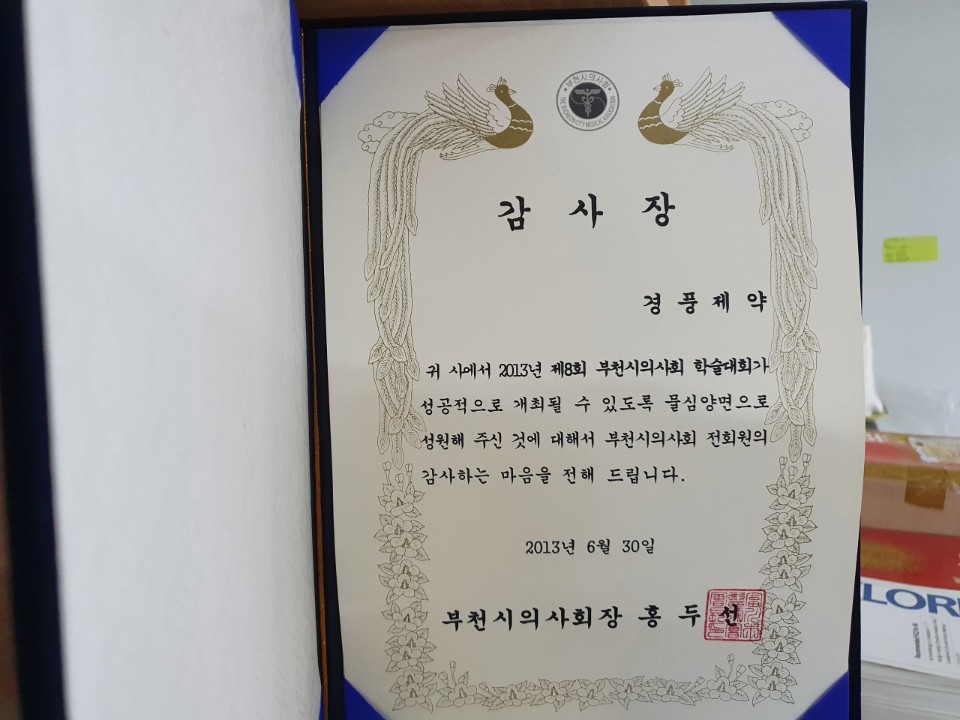 부천시의사회
THE BUCHEON CITY MEDICAL ASSOCIATION
감 사 장
경 풍 제 약
귀 사에서 2013년 제8회 부천시의사회 학술대회가
성공적으로 개최될 수 있도록 물심양면으로
성원해 주신 것에 대해서 부천시의사회 전회원의
감사하는 마음을 전해 드립니다.
2013년 6월 30일
부천시의사회장 홍 두 선
LOR